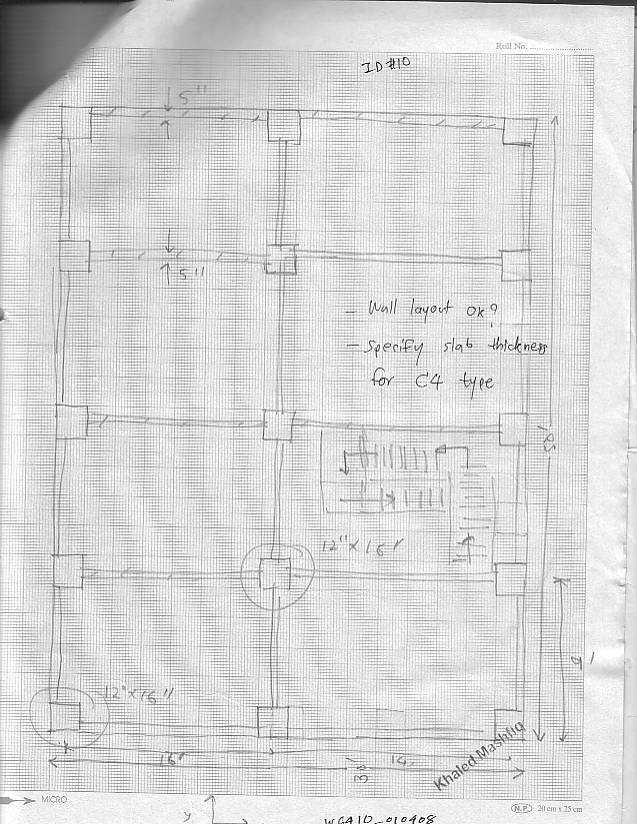 Roll No.
ID #10
5"
5"
- Wall layout ok?
- Specify slab thickness
for C4 type
12" x 16"
9'
12" x 16"
16'
30'
14'
Khaled Mashfiq
MICRO
N.P. 20 cm x 25 cm
y
WG410_010408